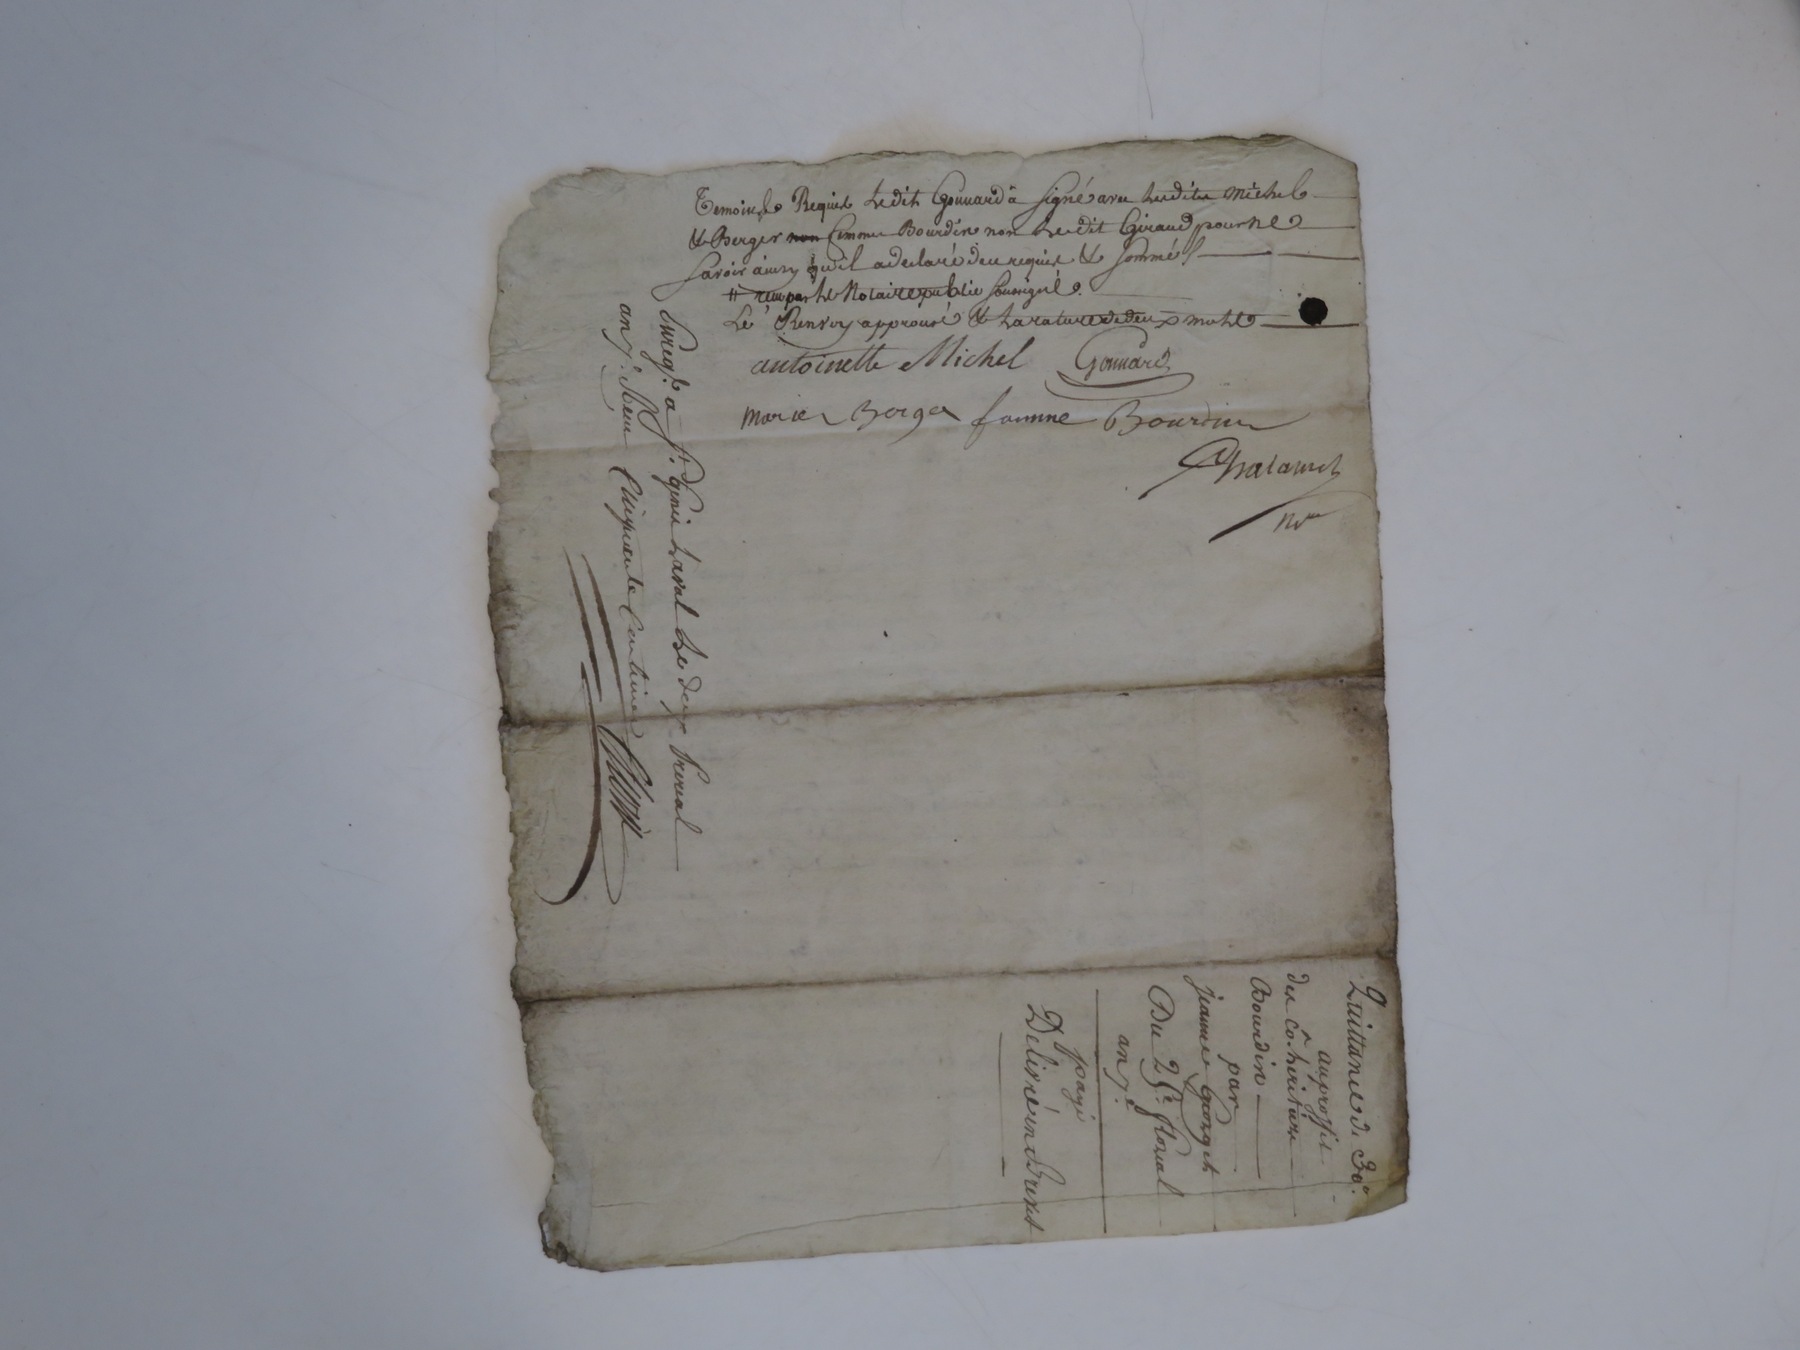 Temoins Requis Ledit Gonnard à signé avec Lesdites Michel
& Berger non femme Bourdin non Ledit Giraud pour ne
savoir ainsy qu'il a declaré deu requis & sommé
par le Notaire public soussigné.
Le Renvoy approuvé & La rature de deux mots
antoinette Michel Gonnard
marie Berger famme Bourdin
Chalamel
Nre
Enregé. a St. Genis Laval Le deux Prereal
an 7. Reçu Cinquante Centimes
Quittance de 30.
au proffit
des cô-heritiers
Bourdin
par
jeanne Georget
Du 25e. floreal
an 7e.
payé
Délivré en Brevet